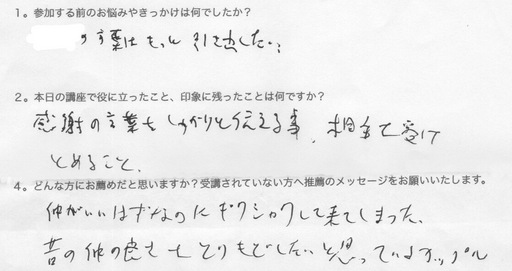 1。参加する前のお悩みやきっかけは何でしたか?
の言葉はもっと引き出したい。
2。本日の講座で役に立ったこと、印象に残ったことは何ですか?
感謝の言葉をしっかりと伝える事、相手を受け
とめること。
4。どんな方にお薦めだと思いますか?受講されていない方へ推薦のメッセージをお願いいたします。
仲がいいはずなのにギクシャクして来てしまった、
昔の仲の良さをとりもどしたいと思っているカップル